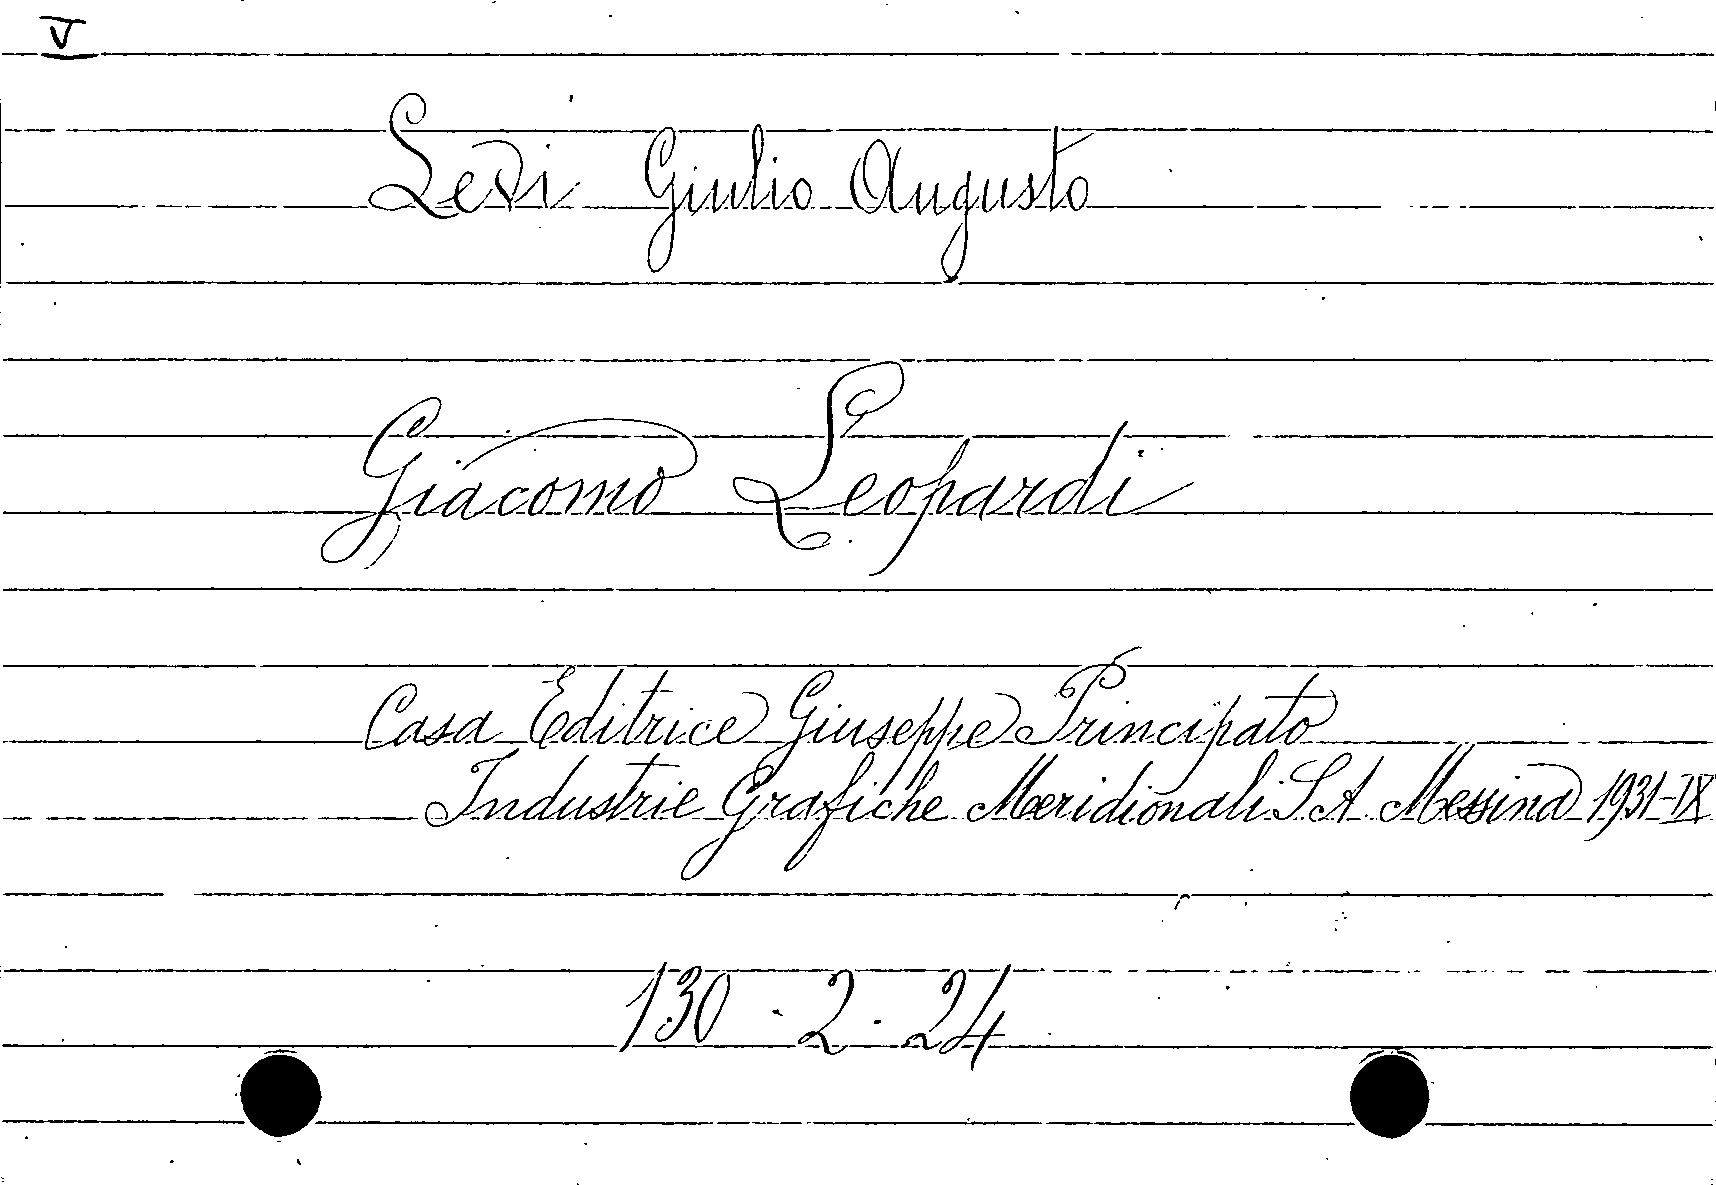 V
Levi Giulio Augusto
Giacomo Leopardi
Casa Editrice Giuseppe Principato
Industrie Grafiche Meridionali S A Messina 1931-IX
130 · 2 · 24